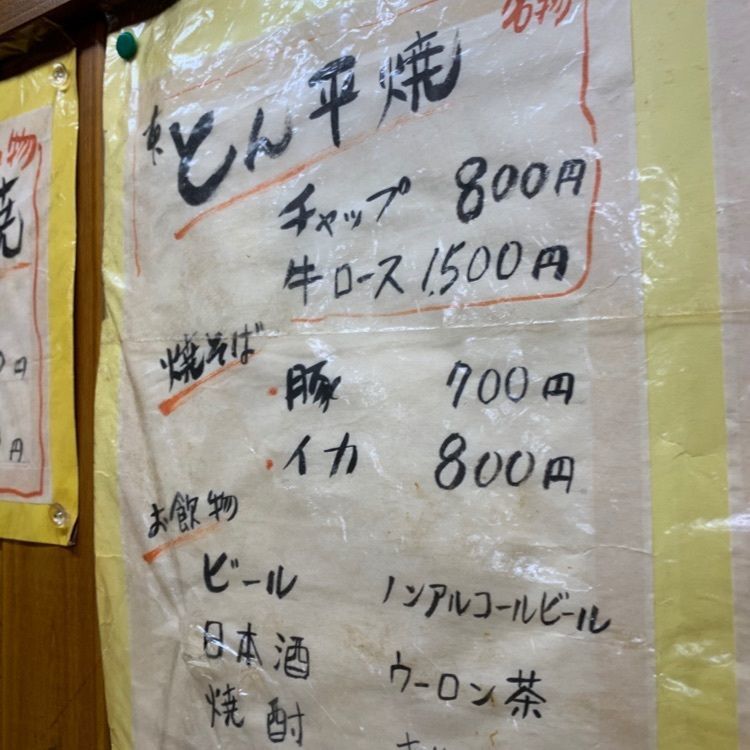 名物
とん平焼
チャップ 800円
牛ロース 1,500円
焼そば
・豚 700円
・イカ 800円
お飲物
ビール ノンアルコールビール
日本酒 ウーロン茶
焼酎
物
焼
円
円